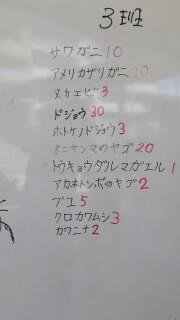 3班
サワガニ10
アメリカザリガニ20
ヌカエビ3
ドジョウ30
ホトケノドジョウ3
オニヤンマのヤゴ20
トウキョウダルマガエル1
アカネトンボのヤゴ2
ブエ5
クロカワムシ3
カワニナ2